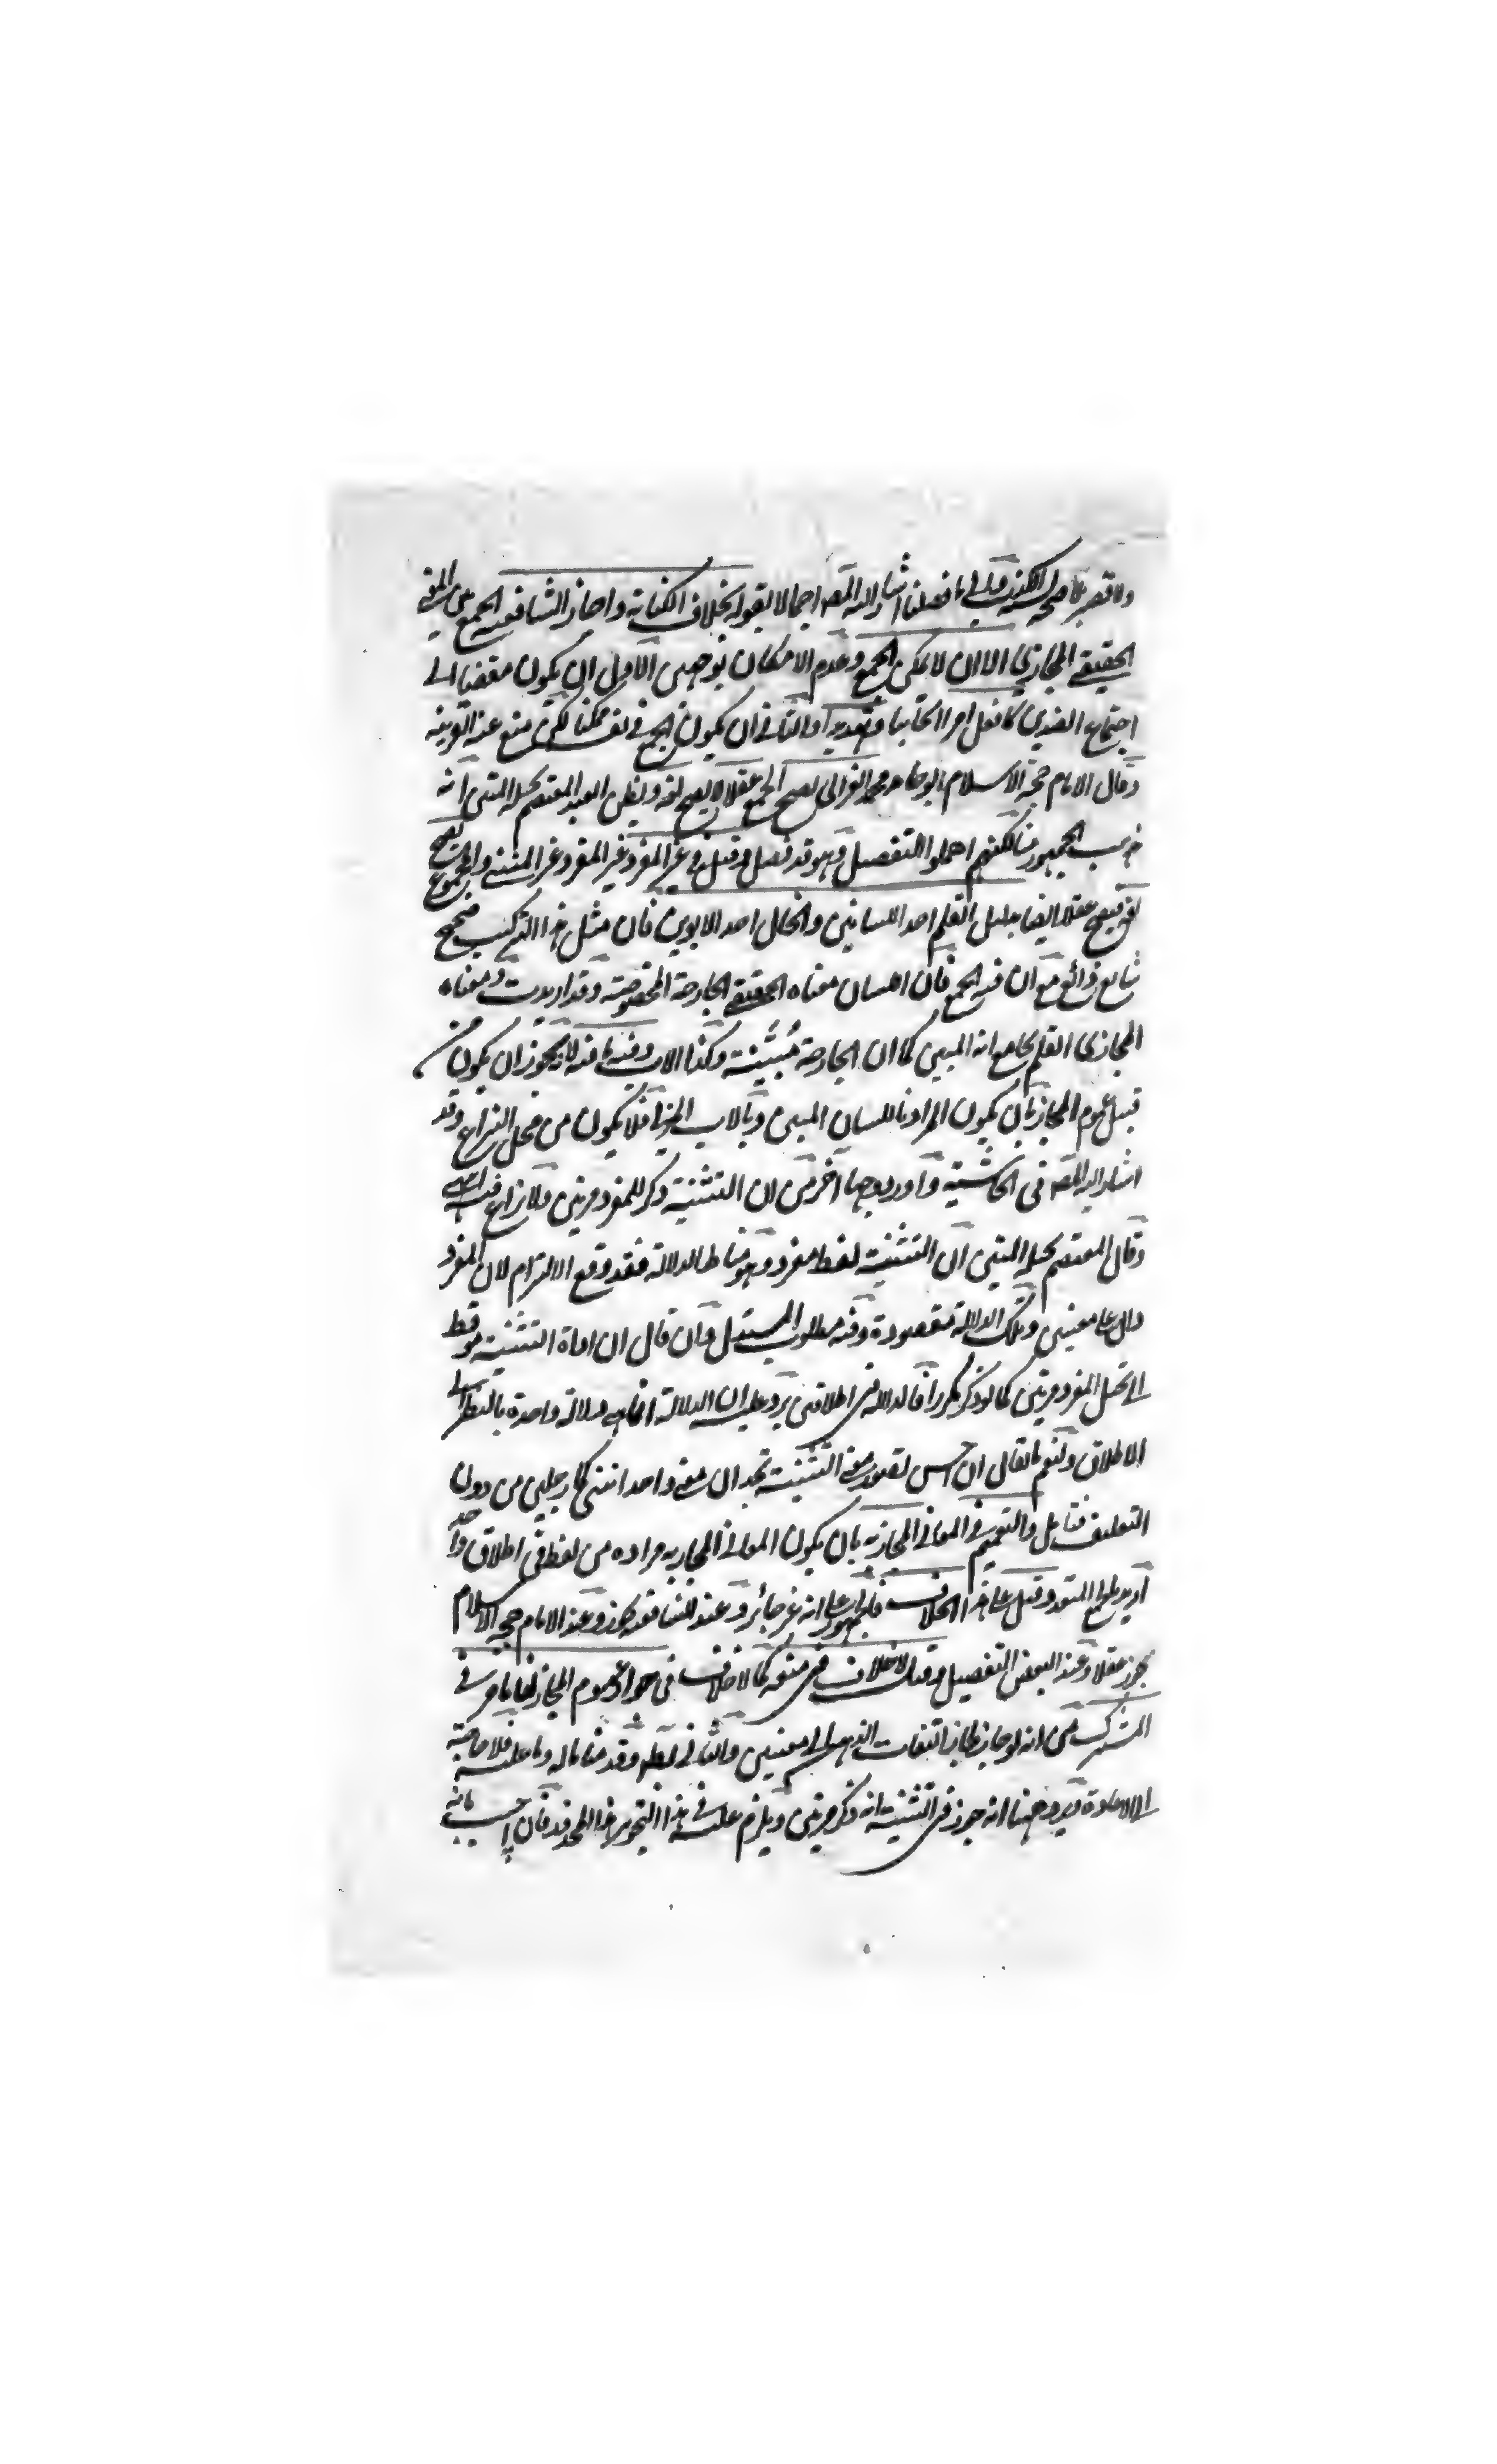 فصلنا اشار اليه المصـ اجمالا بقوله بخلاف الكناية واجاز الشافعية الجمع بين المعنى
الحقيقي المجازي الا ان لا يمكن الجمع وعدم الامكان بوجهين الاول ان يكون مفضيا الى
اجتماع الضدين كافعل امرا ايجابا وتهديدا والثاني ان يكون الجمع في نفسه ممكنا لكن منع عنه القرينة
وقال الامام حجة الاسلام ابو حامد محمد الغزالي يصح الجمع عقلا لا يصح لغة ويظن العبد المعتصم بحبله المتين انه
مذهب الجمهور منا لكنهم اهملوا التفصيل وهو قد فصل وقيل في غير المفرد غير المفرد غير المثنى والمجموع يصح
لغة فيصح عقلا ايضا بدليل القلم احد اللسانين والخال احد الابوين فان مثل هذا التركيب صحيح
شايع ذائع مع ان فيه الجمع فان اللسان معناه الحقيقي الجارحة المخصوصة وقد اريدت ومعناه
المجازي القلم بجامع انه المبين كما ان الجارحة مبينة وكذا الاب وفيه ما فيه لا يجوز ان يكون من
قبيل عموم المجاز بان يكون المراد باللسان المبين وبالاب المربي فلا يكون من محل النزاع وقد
اشار اليه المصـ في الحاشية واورد وجها آخر من ان التثنية ذكر للمفرد مرتين ولا نزاع فيه انتهى
وقال المعتصم بحبله المتين ان التثنية لفظ مفرد وهو مناط الدلالة فقد وقع الالتزام لان المفرد
دال على معنيين وتلك الدلالة مقصودة وفيه مطلوب المستدل وان قال ان اداة التثنية موقظ
المفرد مرتين كما لو ذكر مكررا فالدلالة في اطلاقين يرد عليه ان الدلالة انما هي دلالة واحدة بالنظر الى
الاطلاق ولنعم ما يقال ان احسن تصور معنى التثنية تجد ان معنى واحد اثنين كما رجلين من دون
التعليق فتامل والتعميم في المعاني المجازية بان يكون المعاني المجازية مرادة من لفظ في اطلاق واحد
قيل على هذا الخلاف فالجمهور على انه غير جائز وعند الشافعية يجوز وعند الامام حجة الاسلام
يجوز عقلا وعند البعض التفصيل وقيل لا خلاف في منعه كما لا خلاف في جواز عموم المجاز لنا ما مر في
المشترك من انه لو جاز لجاز التفات الذهن الى معنيين والثاني بطـ وقد مر ما له وما عليه فلا حاجة
الى الاعادة ويرد ههنا انه جوز في التثنية انه ذكر مرتين ويلزم عليه في هذا التجويز هذا المحذور فان اجيب بانه